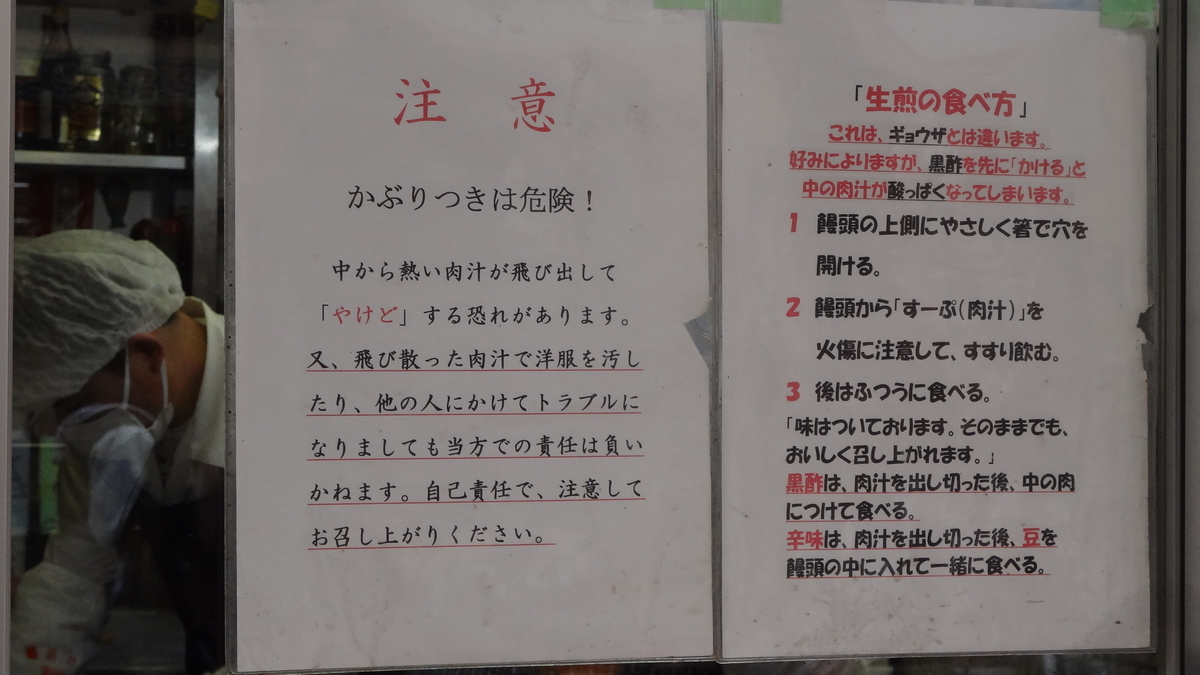 注 意
かぶりつきは危険！
中から熱い肉汁が飛び出して
「やけど」する恐れがあります。
又、飛び散った肉汁で洋服を汚し
たり、他の人にかけてトラブルに
なりましても当方での責任は負い
かねます。自己責任で、注意して
お召し上がりください。
「生煎の食べ方」
これは、ギョウザとは違います。
好みによりますが、黒酢を先に「かける」と
中の肉汁が酸っぱくなってしまいます。
1 饅頭の上側にやさしく箸で穴を
開ける。
2 饅頭から「すーぷ(肉汁)」を
火傷に注意して、すすり飲む。
3 後はふつうに食べる。
「味はついております。そのままでも、
おいしく召し上がれます。」
黒酢は、肉汁を出し切った後、中の肉
につけて食べる。
辛味は、肉汁を出し切った後、豆を
饅頭の中に入れて一緒に食べる。